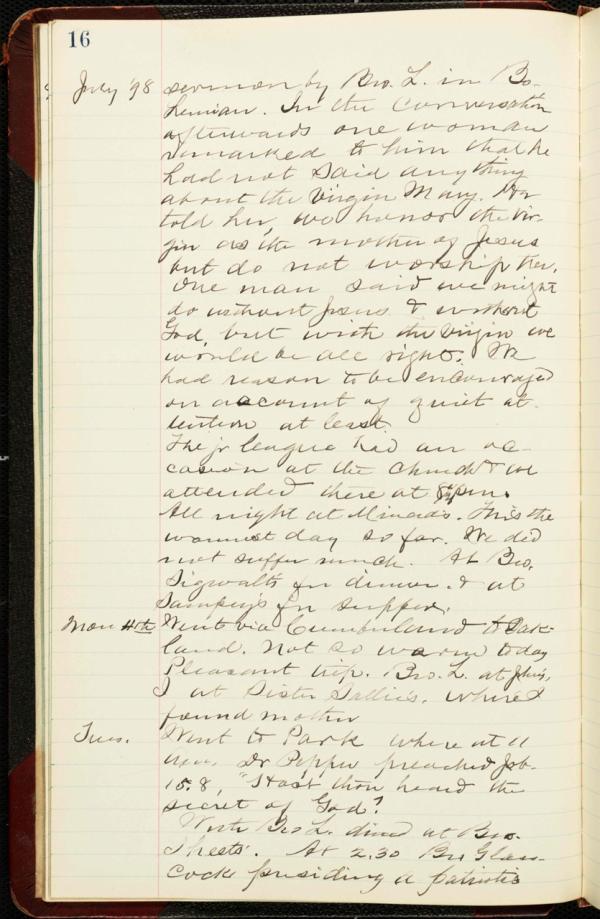 16
July '98 sermon by Bro. L. in Bo-
hemian. In the conversation
afterwards one woman
remarked to him that he
had not said anything
about the Virgin Mary. He
told her, we honor the Vir-
gin as the mother of Jesus
but do not worship her.
One man said we might
do without Jesus & without
God, but with the Virgin we
would be all right. We
had reason to be encouraged
on account of quiet at-
tention at least.
The jr league had an oc-
casion at the church & we
attended there at 8 p.m.
All night at Minado's. This the
warmest day so far. We did
not suffer much. At Bro.
Sigwalt's for dinner & at
Sampey's for supper.
Mon 4th Went via Cumberland to Oak-
land. Not so warm today
Pleasant trip. Bro. L. at John's,
I at Sister Sallie's, where I
found mother
Tues. Went to Park where at 11
a.m. Dr Pepper preached Job.
15.8, "Hast thou heard the
secret of God?
With Bro L. dined at Bro.
Sheets'. At 2.30 Bro Glass-
cock presiding a patriotic